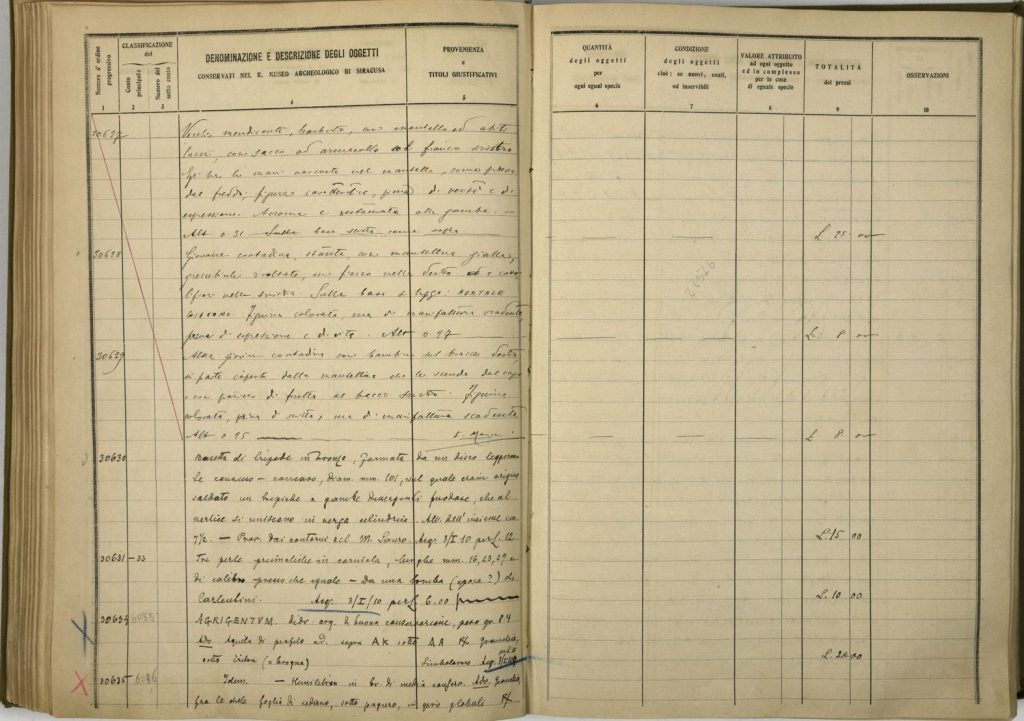 Numero d'ordine progressivo
CLASSIFICAZIONE
del
Conto principale
Numero del sotto conto
DENOMINAZIONE E DESCRIZIONE DEGLI OGGETTI
CONSERVATI NEL R. MUSEO ARCHEOLOGICO DI SIRACUSA
PROVENIENZA
e
TITOLI GIUSTIFICATIVI
1 2 3 4 5
30627 Vecchio mendicante, barbuto, con mantello ed abito
laceri, con sacco ad armacollo sul fianco sinistro
le mani nascoste nel mantello, come
dal freddo; figura caratteristica, piena di verità e di
espressione. Acroma e restaurata alle gambe. —
Alt 0.31 — Sulla base scritta come sopra
30628 Giovane contadina, stante con mantellina gialla,
grembiule rivoltato, un fiasco nella destra e
fiori nella sinistra. Sulla base si legge:
GIACOMO. Figurina colorata, ma di manifattura scadente
priva di espressione e di vita. Alt 0.27
30629 Altra giovine contadina con bambino sul braccio destro,
in parte coperto dalla mantellina che le scende dal capo
e con paniere di frutta al braccio sinistro. Figurina
colorata, priva di vita, ma di manifattura scadente
Alt 0.25
30630 Basetta di brigade in bronzo, formata da un disco leggerme
te convesso - concavo, diam. mm. 101, sul quale erano origin
saldato un tripiede a gambe divergenti fusolare, che al
vertice si uniscono in verga cilindrica. Alt. dell'insieme cm
7½. — Prov. dai contorni del M. Lauro. Acq. 3/I 10 per £. 12
30631 - 33 Tre perle prismatiche in corniola, lunghe mm. 16, 23, 29 e
di calibro presso che eguale — Da una tomba (epoca?) di
Carlentini. Acq. 3/I/10 per £ 6.00
30634 6085 AGRIGENTVM. Didr. arg. di buona conservazione, peso gr. 8.4
Adv. Aquila di profilo ad. sopra AK sotto R/. Granchio,
sotto
simbolavano Acq.
30635 - 6086 Idem. — Hemilitron in br. di media conserv. Adv. Granchio,
fra le chele foglia di sedano, sotto paguro, in giro globuli R/
QUANTITÀ
degli oggetti
per
ogni egual specie
CONDIZIONE
degli oggetti
cioè: se nuovi, usati,
od inservibili
VALORE ATTRIBUITO
ad ogni oggetto
ed in complesso
per le cose
di eguale specie
TOTALITÀ
dei prezzi
OSSERVAZIONI
6 7 8 9 10
£ 25 00
£. 8 00
£ 8 00
£. 15 00
£. 10 00
£. 20 00